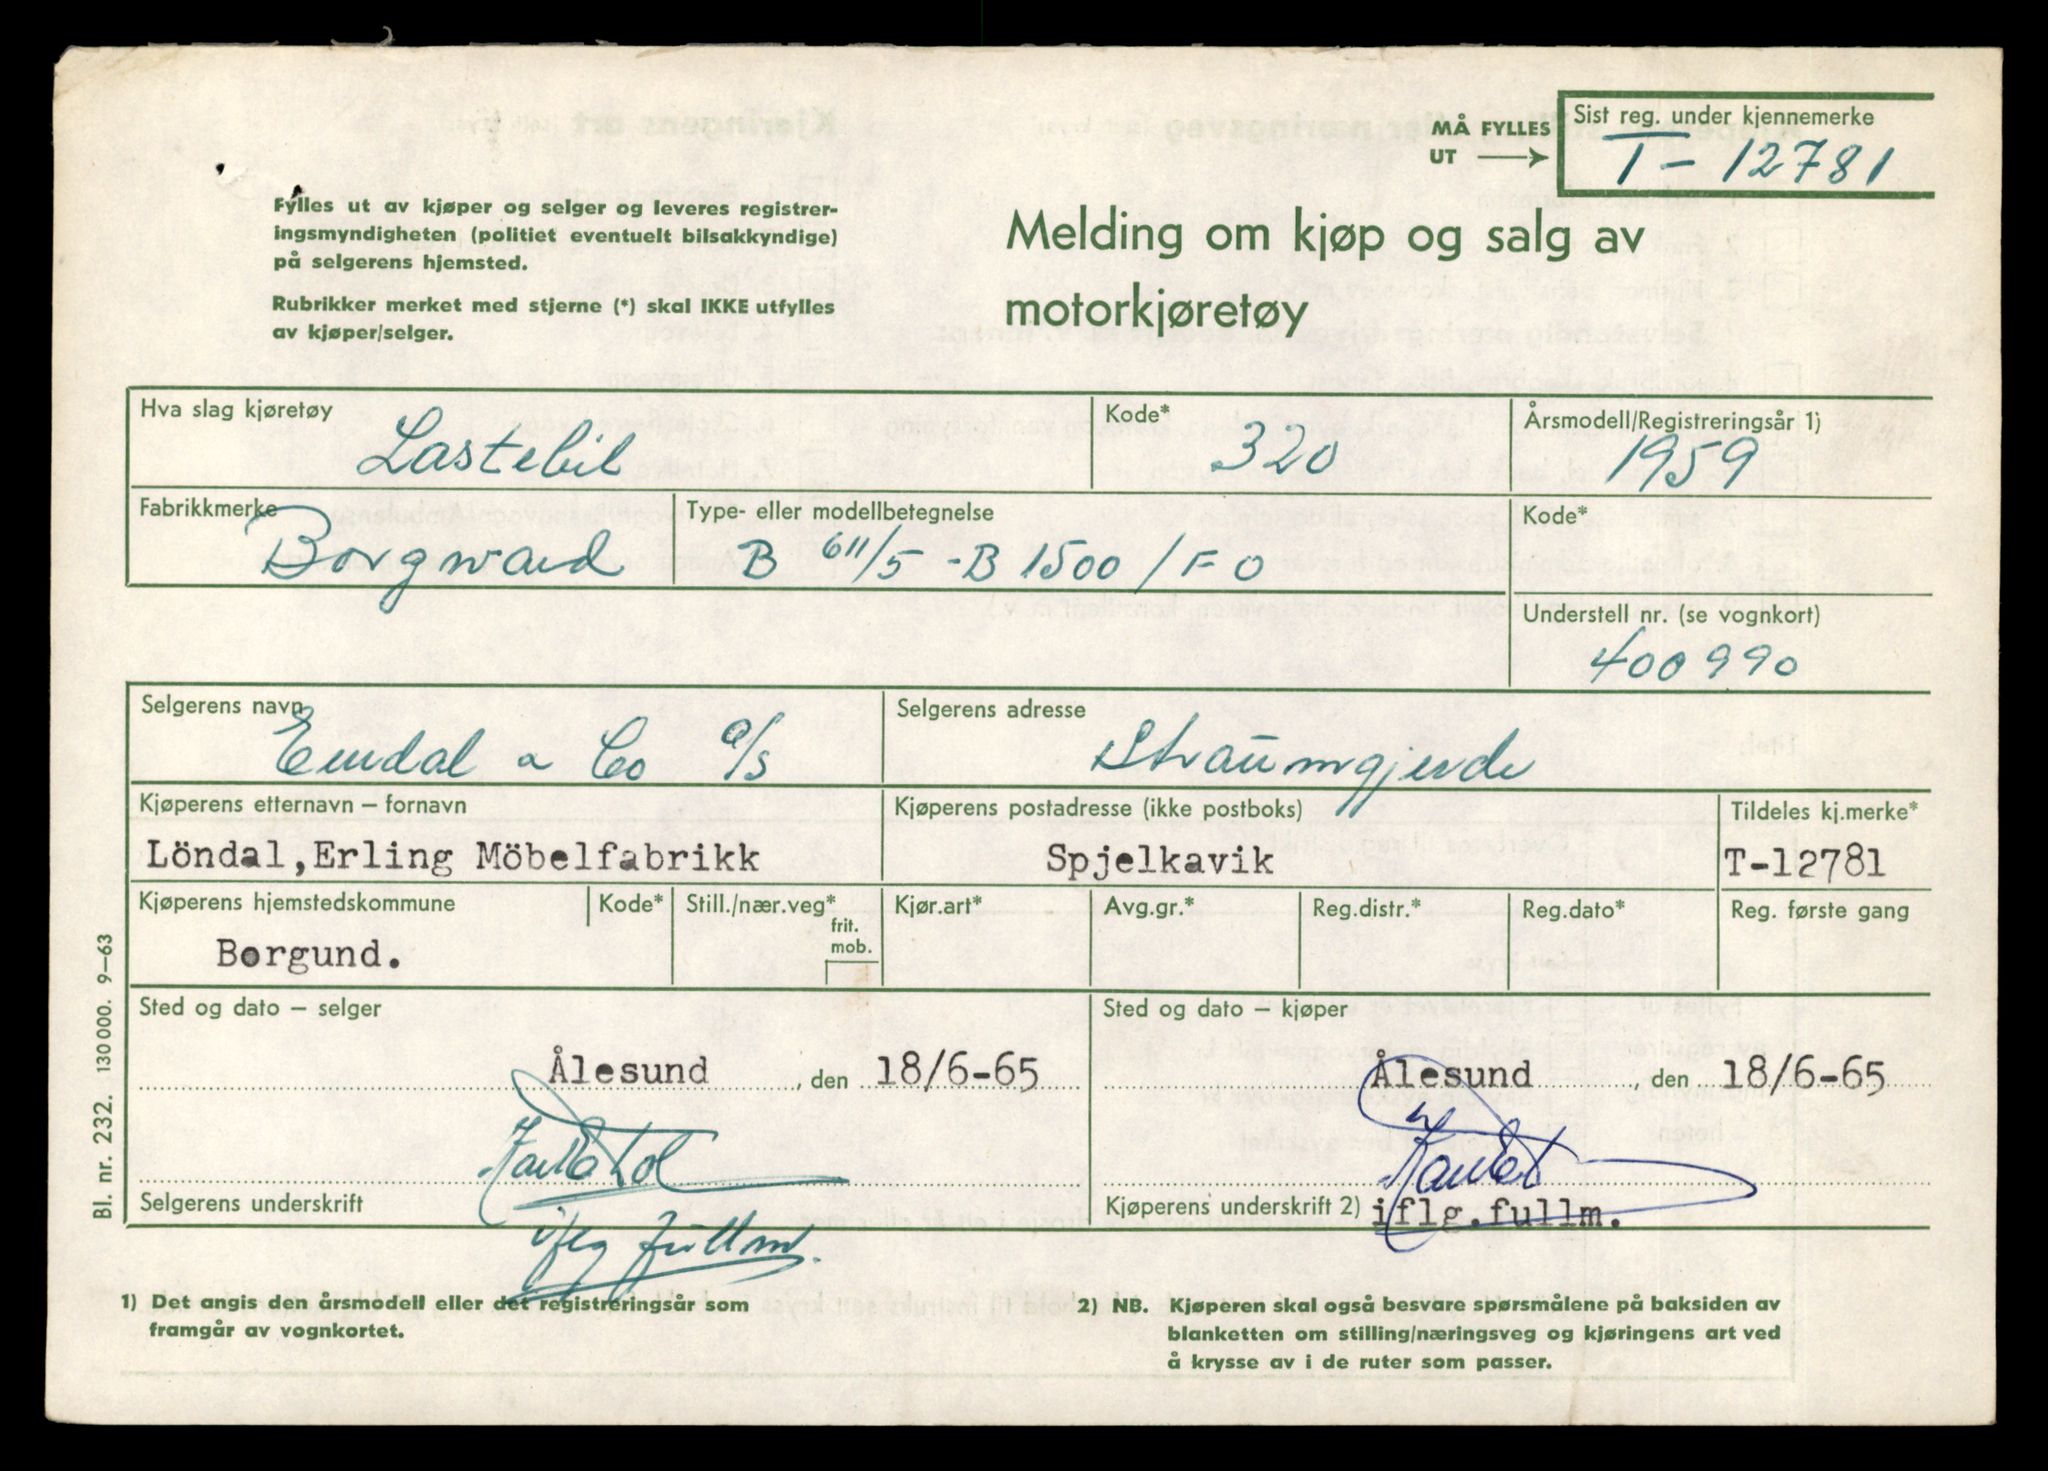 MÅ FYLLES
UT
Sist reg. under kjennemerke
T - 12781
Fylles ut av kjøper og selger og leveres registrer-
ingsmyndigheten (politiet eventuelt bilsakkyndige)
på selgerens hjemsted.
Rubrikker merket med stjerne (*) skal IKKE utfylles
av kjøper/selger.
Melding om kjøp og salg av
motorkjøretøy
Hva slag kjøretøy
Lastebil
Kode*
320
Årsmodell/Registreringsår 1)
1959
Fabrikkmerke
Borgward
Type- eller modellbetegnelse
B 611/5 - B 1500 / F O
Kode*
Understell nr. (se vognkort)
400990
Selgerens navn
Emdal & Co a/s
Selgerens adresse
Straumgjerde
Kjøperens etternavn – fornavn
Löndal,Erling Möbelfabrikk
Kjøperens postadresse (ikke postboks)
Spjelkavik
Tildeles kj.merke*
T-12781
Kjøperens hjemstedskommune
Borgund.
Kode*
Still./nær.veg*
frit.
mob.
Kjør.art*
Avg.gr.*
Reg.distr.*
Reg.dato*
Reg. første gang
Sted og dato – selger
Ålesund , den 18/6-65
Sted og dato – kjøper
Ålesund , den 18/6-65
Selgerens underskrift
iflg fullm.
Kjøperens underskrift 2)
iflg.fullm.
1) Det angis den årsmodell eller det registreringsår som
framgår av vognkortet.
2) NB. Kjøperen skal også besvare spørsmålene på baksiden av
blanketten om stilling/næringsveg og kjøringens art ved
å krysse av i de ruter som passer.
Bl. nr. 232. 130 000. 9–63